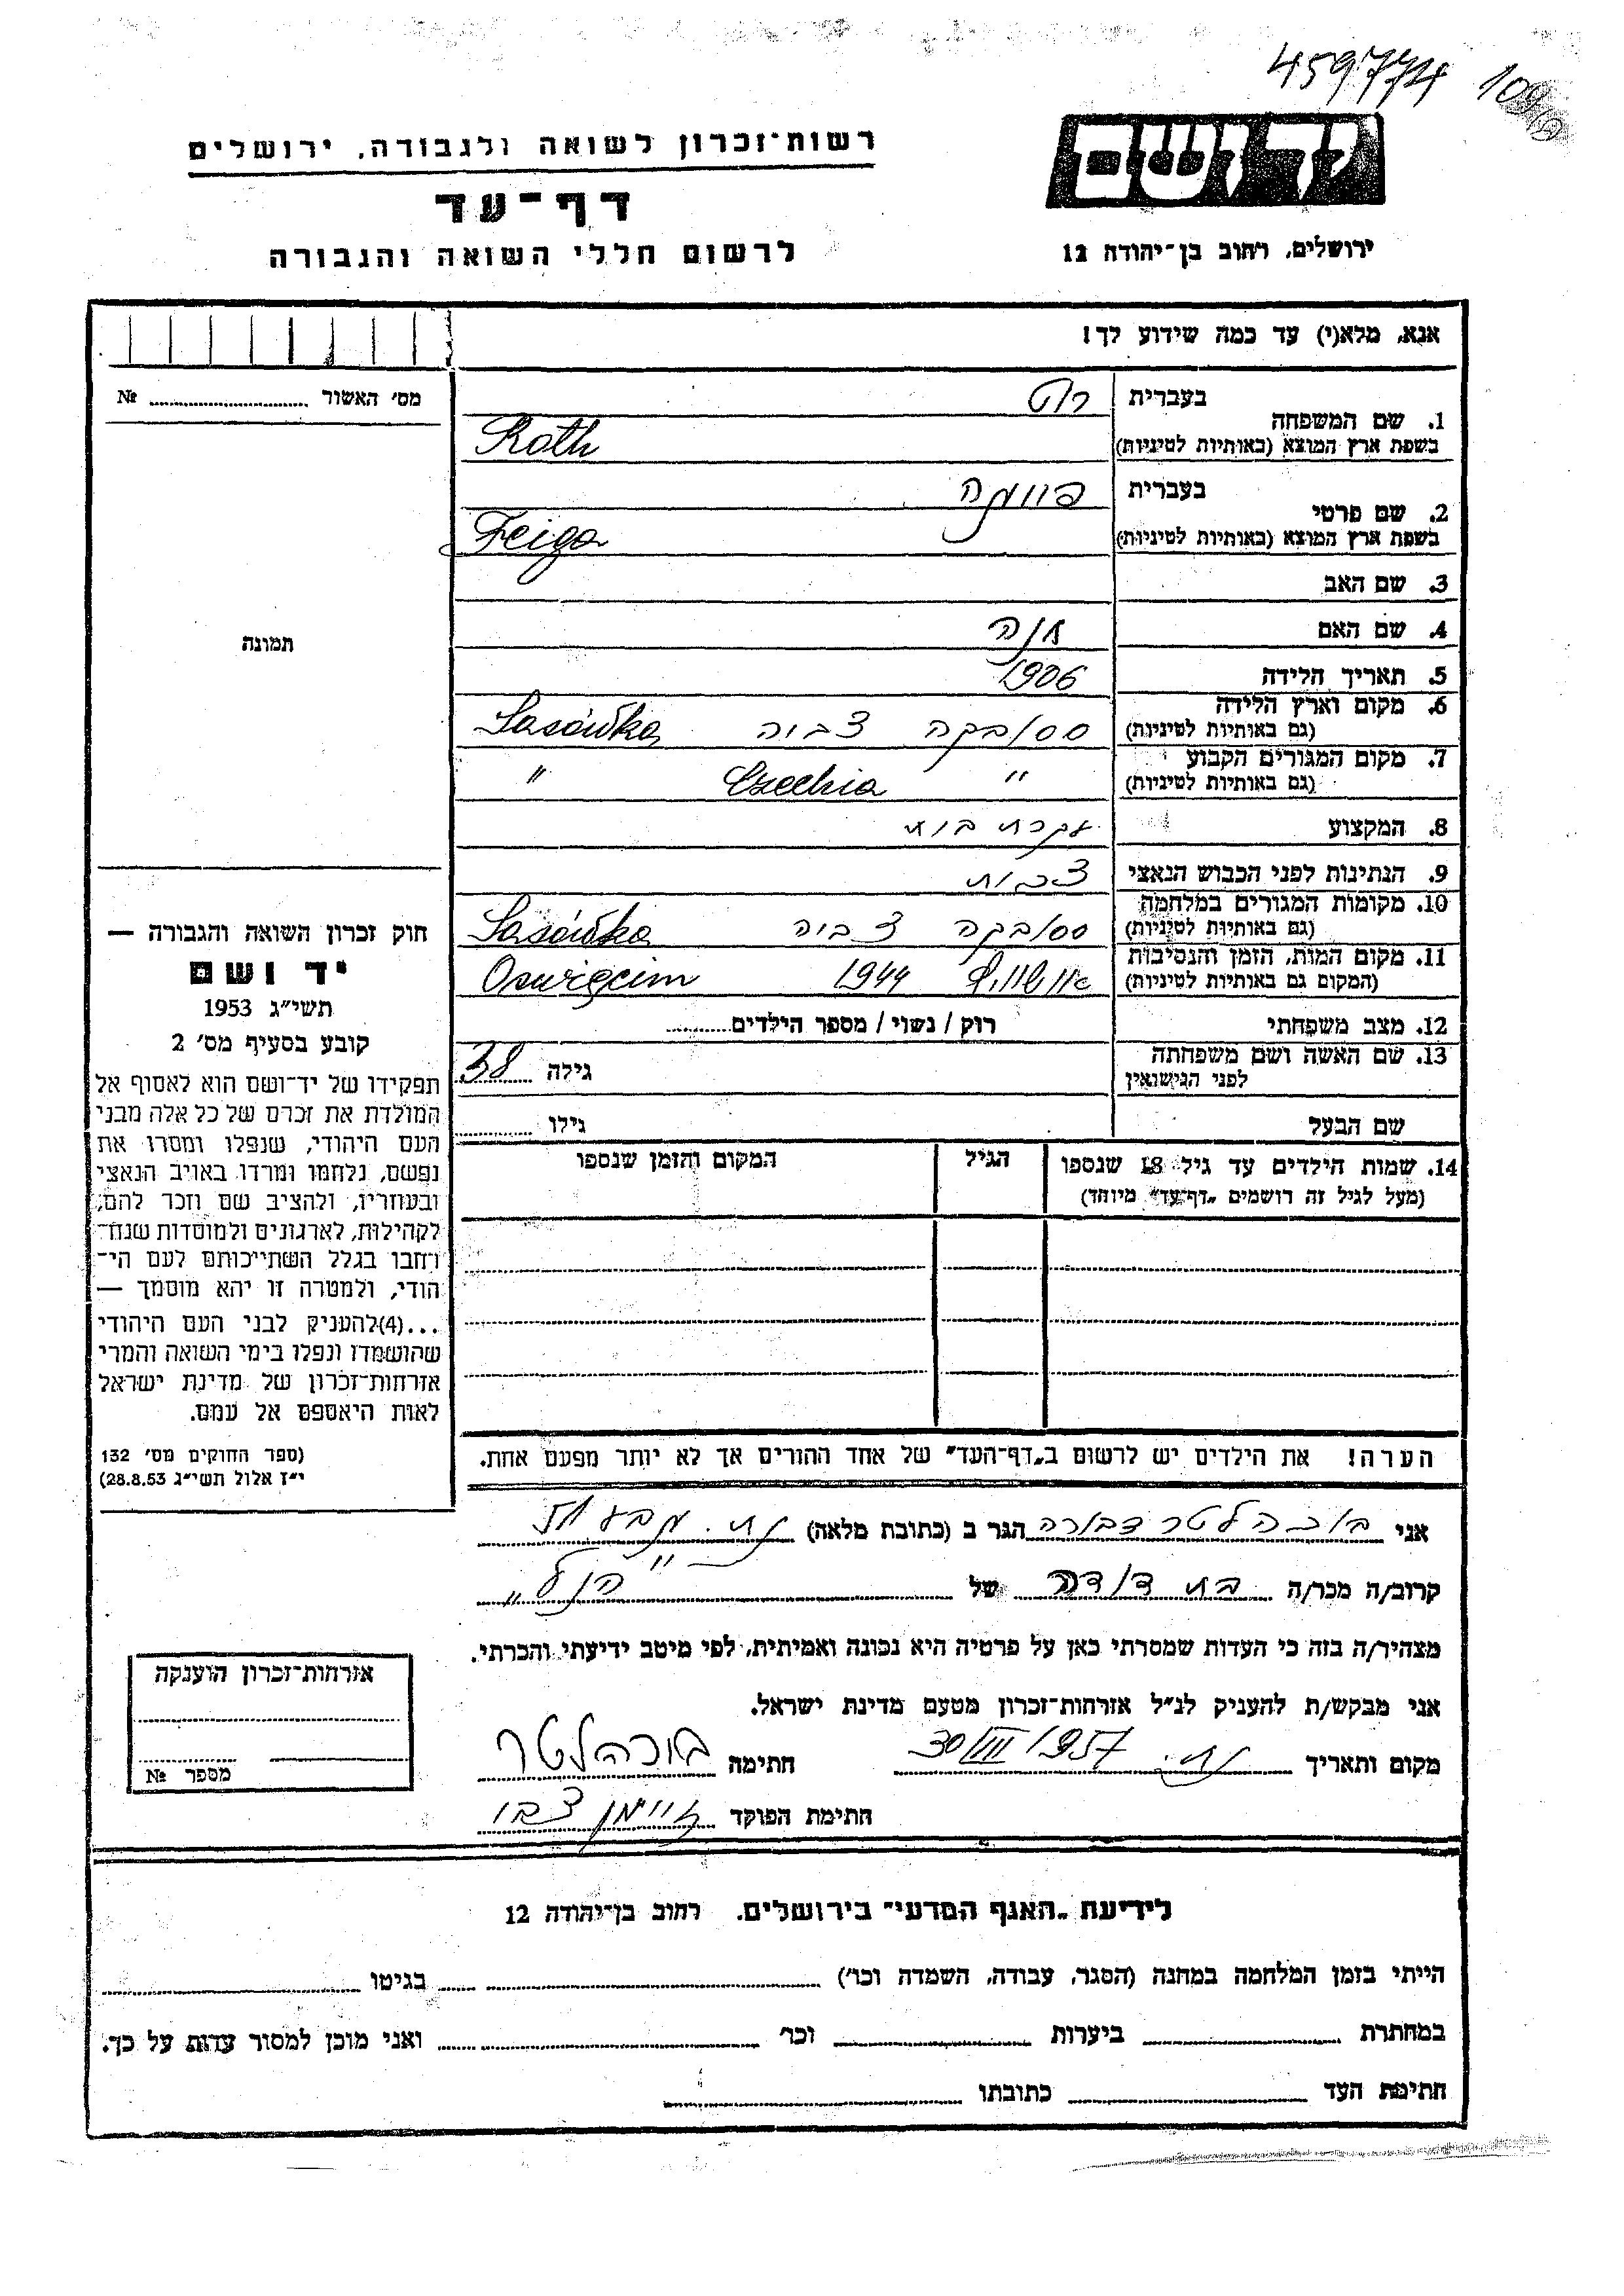 459774
רשות־זכרון לשואה ולגבורה, ירושלים
דף־עד
לרשום חללי השואה והגבורה
יד ושם
ירושלים, רחוב בן־יהודה 12
אנא, מלא(י) עד כמה שידוע לך!
מס׳ האשור № ........
תמונה
1. שם המשפחה
בעברית רוט
בשפת ארץ המוצא (באותיות לטיניות) Roth
2. שם פרטי
בעברית
בשפת ארץ המוצא (באותיות לטיניות) Feiga
3. שם האב
4. שם האם חנה
5. תאריך הלידה 1906
6. מקום וארץ הלידה
(גם באותיות לטיניות) ססובקה צ׳כיה Sasówka
7. מקום המגורים הקבוע
(גם באותיות לטיניות) " Czechia "
8. המקצוע עקרת בית
9. הנתינות לפני הכבוש הנאצי צ׳כית
10. מקומות המגורים במלחמה
(גם באותיות לטיניות) ססובקה צ׳כיה Sasówka
11. מקום המות, הזמן והנסיבות
(המקום גם באותיות לטיניות) אושוויץ 1944 Oswięcim
12. מצב משפחתי רוק / נשוי / מספר הילדים........
13. שם האשה ושם משפחתה
לפני הנישואין גילה 38
שם הבעל גילו ........
14. שמות הילדים עד גיל 18 שנספו
(מעל לגיל זה רושמים „דף־עד״ מיוחד)
הגיל
המקום והזמן שנספו
חוק זכרון השואה והגבורה —
יד ושם
תשי״ג 1953
קובע בסעיף מס׳ 2
תפקידו של יד־ושם הוא לאסוף אל
המולדת את זכרם של כל אלה מבני
העם היהודי, שנפלו ומסרו את
נפשם, נלחמו ומרדו באויב הנאצי
ובעוזריו, ולהציב שם וזכר להם,
לקהילות, לארגונים ולמוסדות שנח־
רחבו בגלל השתייכותם לעם הי־
הודי, ולמטרה זו יהא מוסמך —
...(4)להעניק לבני העם היהודי
שהושמדו ונפלו בימי השואה והמרי
אזרחות־זכרון של מדינת ישראל
לאות היאספם אל עמם.
(ספר החוקים מס׳ 132
י״ז אלול תשי״ג 28.8.53)
הערה! את הילדים יש לרשום ב„דף־העד״ של אחד ההורים אך לא יותר מפעם אחת.
אני בוכהלטר דבורה הגר ב (כתובת מלאה)
קרוב/ה מכר/ה בת דודה של "הנ״ל"
מצהיר/ה בזה כי העדות שמסרתי כאן על פרטיה היא נכונה ואמיתית, לפי מיטב ידיעתי והכרתי.
אני מבקש/ת להעניק לנ״ל אזרחות־זכרון מטעם מדינת ישראל.
מקום ותאריך 1957 חתימה בוכהלטר
חתימת הפוקד
אזרחות־זכרון הוענקה
מספר №
לידיעת „האגף המדעי״ בירושלים, רחוב בן־יהודה 12
הייתי בזמן המלחמה במחנה (הסגר, עבודה, השמדה וכו׳) ........ בגיטו ........
במחתרת ........ ביערות ........ וכו׳ ........ ואני מוכן למסור עדות על כך.
חתימת העד ........ כתובתו ........